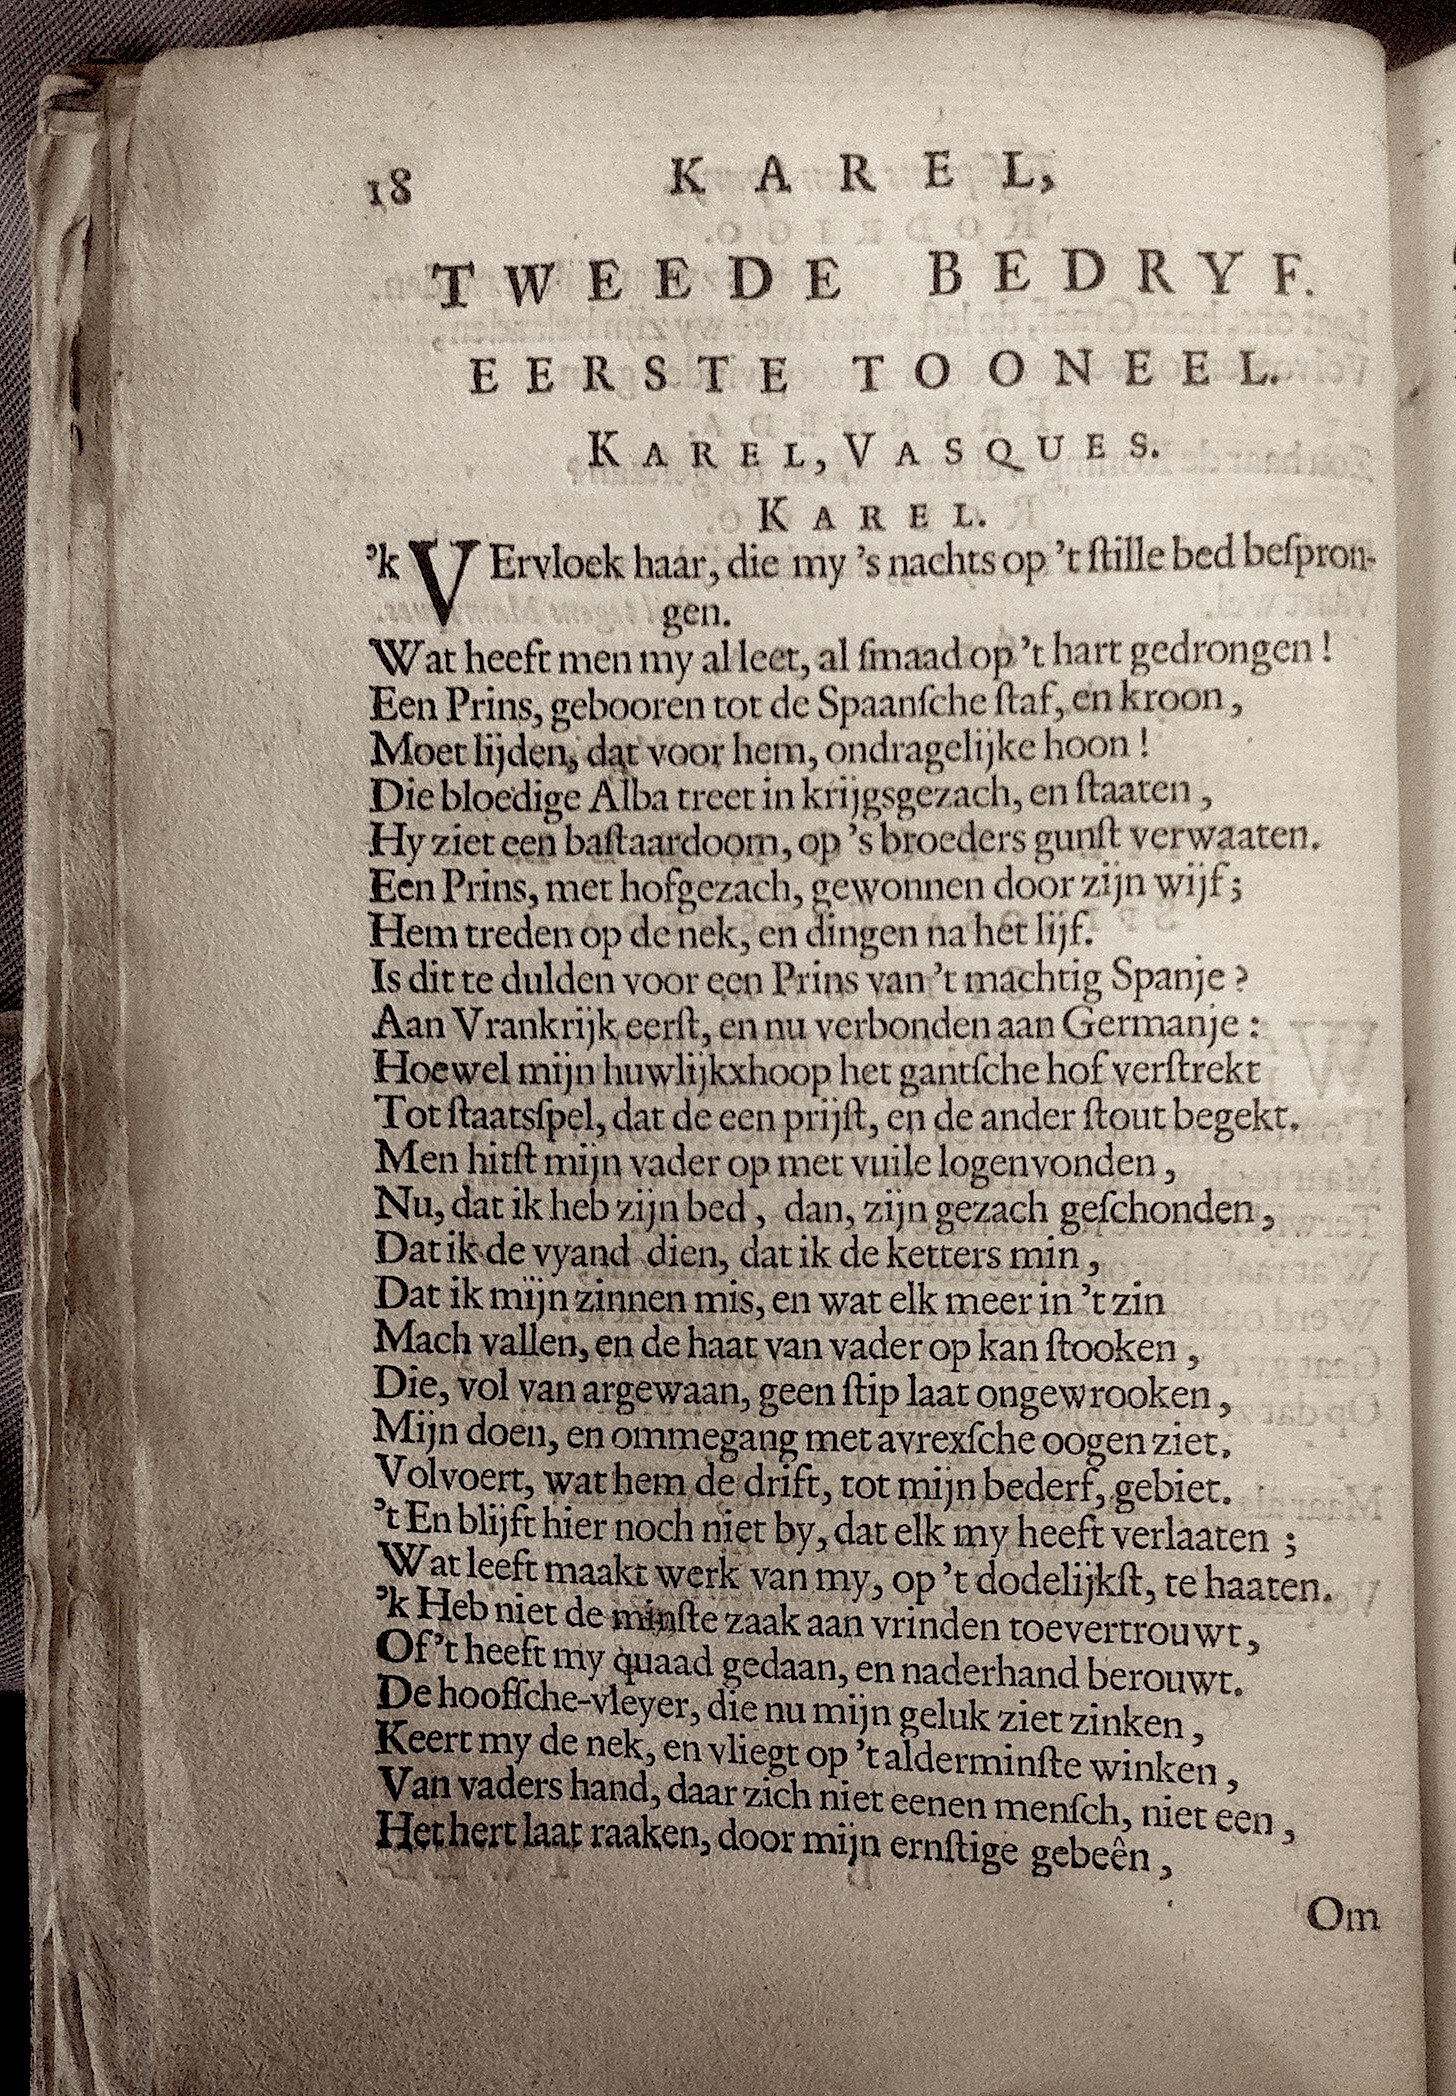 18 KAREL,
TWEEDE BEDRYF.
EERSTE TOONEEL.
KAREL, VASQUES.
KAREL.
’k VErvloek haar, die my ’s nachts op ’t ſtille bed beſpron-
gen.
Wat heeft men my al leet, al ſmaad op ’t hart gedrongen!
Een Prins, gebooren tot de Spaanſche ſtaf, en kroon,
Moet lijden, dat voor hem, ondragelijke hoon!
Die bloedige Alba treet in krijgsgezach, en ſtaaten,
Hy ziet een baſtaardoom, op ’s broeders gunſt verwaaten.
Een Prins, met hofgezach, gewonnen door zijn wijf;
Hem treden op de nek, en dingen na het lijf.
Is dit te dulden voor een Prins van ’t machtig Spanje?
Aan Vrankrijk eerſt, en nu verbonden aan Germanje:
Hoewel mijn huwlijkxhoop het gantſche hof verſtrekt
Tot ſtaatsſpel, dat de een prijſt, en de ander ſtout begekt.
Men hitſt mijn vader op met vuile logenvonden,
Nu, dat ik heb zijn bed, dan, zijn gezach geſchonden,
Dat ik de vyand dien, dat ik de ketters min,
Dat ik mijn zinnen mis, en wat elk meer in ’t zin
Mach vallen, en de haat van vader op kan ſtooken,
Die, vol van argewaan, geen ſtip laat ongewrooken,
Mijn doen, en ommegang met avrexſche oogen ziet,
Volvoert, wat hem de drift, tot mijn bederf, gebiet.
’t En blijft hier noch niet by, dat elk my heeft verlaaten;
Wat leeft maakt werk van my, op ’t dodelijkſt, te haaten.
’k Heb niet de minſte zaak aan vrinden toevertrouwt,
Of ’t heeft my quaad gedaan, en naderhand berouwt.
De hoofſche-vleyer, die nu mijn geluk ziet zinken,
Keert my de nek, en vliegt op ’t alderminſte winken,
Van vaders hand, daar zich niet eenen menſch, niet een,
Het hert laat raaken, door mijn ernſtige gebeên,
Om